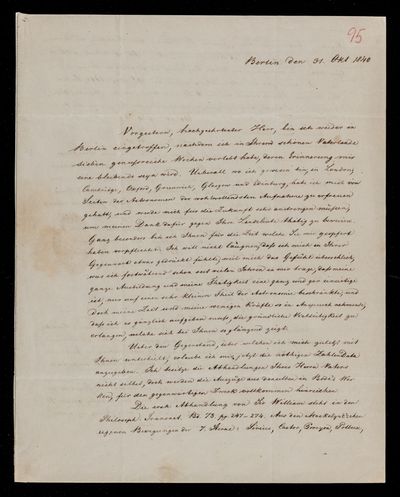 95
Berlin den 31 Okt 1840
Vorgestern, hochgeehrtester Herr, bin ich wieder in
Berlin eingetroffen, nachdem ich in Ihrem schönen Vaterlande
sieben genussreiche Wochen verlebt habe, deren Erinnerung mir
eine bleibende seyn wird. Ueberall wo ich gewesen bin, in London,
Cambridge, Oxford, Greenwich, Glasgow und Edinburg, habe ich mich von
Seiten der Astronomen der wohlwollendsten Aufnahme zu erfreuen
gehabt, und werde mich für die Zukunft sehr anstrengen müssen,
um meinen Dank dafür gegen Ihre Landsleute thätig zu beweisen.
Ganz besonders bin ich Ihnen für die Zeit welche Sie mir geopfert
haben verpflichtet. Ich will nicht läugnen, dass ich mich in Ihrer
Gegenwart etwas gedrückt fühlte, weil mich das Gefühl
was ich fortwährend schon seit vielen Jahren in mir trage, dass meine
ganze Ausbildung und meine Thätigkeit eine ganz und gar einseitige
ist, nur auf einen sehr kleinen Theil der Astronomie beschränkt, und
doch meine Zeit und meine wenigen Kräfte so in Anspruch nehmend,
dass ich es gänzlich aufgeben muss, die gründliche Vielseitigkeit zu
erlangen, welche sich bei Ihnen so glänzend zeigt.
Ueber den Gegenstand, über welchen ich mich zuletzt mit
Ihnen unterhielt, erlaube ich mir jetzt die nöthigen Zahlen Data
anzugeben. Ich besitze die Abhandlungen Ihres Herrn Vaters
nicht selbst, doch werden die Auszüge aus denselben in Bode's
für den gegenwärtigen Zweck vollkommen hinreichen.
Die erste Abhandlung von Sir William steht in den
Philosoph. Transact. Bd. 73. pg. 247-274. Aus den Maskelyne'schen
eigenen Bewegungen der 7 Sterne: Sirius, Castor, Procyon, Pollux,